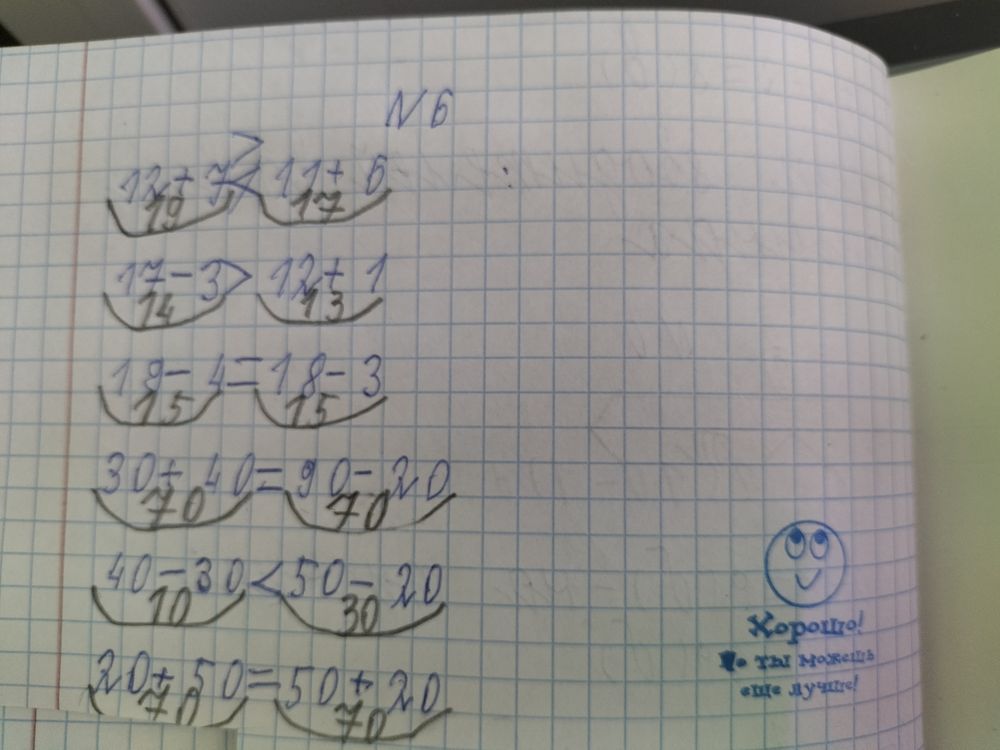 N 6
12+7 > 11+6
19 17
17-3 > 12+1
14 13
19-4 = 18-3
15 15
30+40 = 90-20
70 70
40-30 < 50-20
10 30
20+50 = 50+20
70 70
Хорошо!
Но ты можешь
еще лучше!